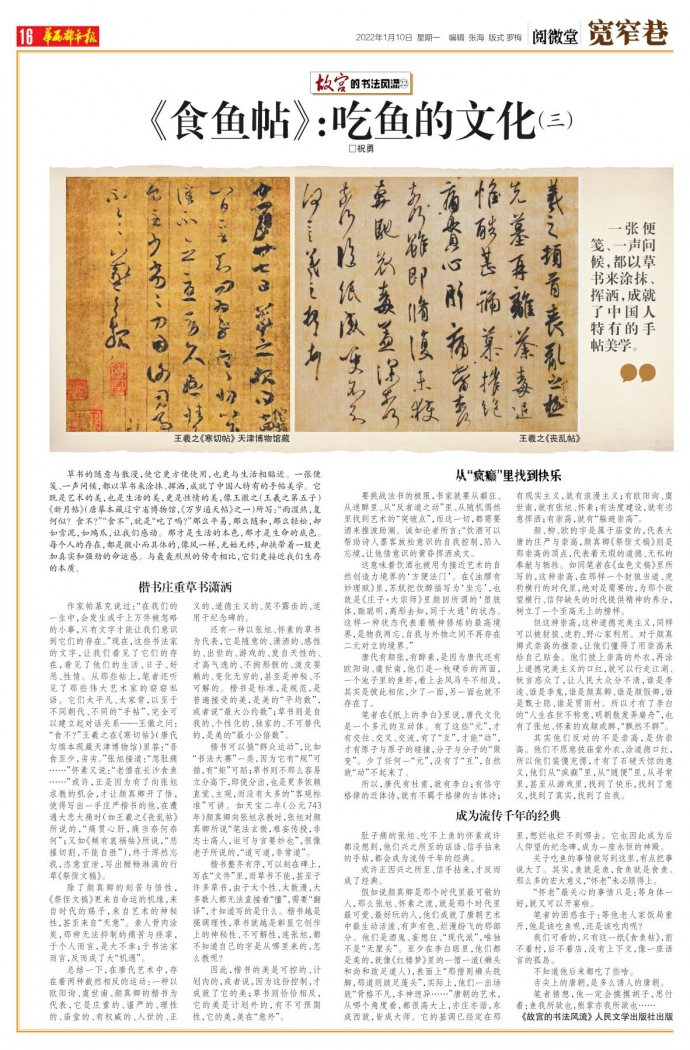 16 华西都市报
2022年1月10日 星期一 编辑 张海 版式 罗梅
阅微堂 宽窄巷
故宫的书法风流
《食鱼帖》:吃鱼的文化(三)
□祝勇
一张便
笺、一声问
候,都以草
书来涂抹、
挥洒,成就
了中国人
特有的手
帖美学。
王羲之《寒切帖》 天津博物馆藏
王羲之《丧乱帖》
草书的随意与散漫,使它更方便使用,也更与生活相贴近。一张便
笺、一声问候,都以草书来涂抹、挥洒,成就了中国人特有的手帖美学。它
既是艺术的美,也是生活的美,更是性情的美,像王徽之(王羲之第五子)
《新月帖》(唐摹本藏辽宁省博物馆,《万岁通天帖》之一)所写:“雨湿热,复
何似?食不?”“食不”,就是“吃了吗?”那么平易,那么随和,那么轻松,却
如雪泥,如鸿爪,让我们感动。那才是生活的本色,那才是生命的底色。
每个人的存在,都是微小而具体的,像风一样,无始无终,却挟带着一股更
加真实和强劲的命运感。与轰轰烈烈的传奇相比,它们更接近我们生存
的本质。
楷书庄重草书潇洒
作家帕慕克说过:“在我们的
一生中,会发生成千上万件被忽略
的小事,只有文字才能让我们意识
到它们的存在。”现在,这些书法家
的文字,让我们看见了它们的存
在,看见了他们的生活、日子、好
恶、性情。从那些帖上,笔者还听
见了那些伟大艺术家的窃窃私
语。它们太平凡、太家常,以至于
不同朝代、不同的“手帖”,完全可
以建立起对话关系——王徽之问:
“食不?”王羲之在《寒切帖》(唐代
勾填本现藏天津博物馆)里答:“吾
食至少,劣劣。”张旭接道:“忽肚痛
……”怀素又说:“老僧在长沙食鱼
……”或许,正是因为有了向张旭
求教的机会,才让颜真卿开了悟,
使得写出一手庄严楷书的他,在遭
遇大悲大痛时(如王羲之《丧乱帖》
所说的,“痛贯心肝,痛当奈何奈
何”;又如《频有哀祸帖》所说,“悲
摧切割,不能自胜”),终于浑然忘
我,恣意宣泄,写出酣畅淋漓的行
草《祭侄文稿》。
除了颜真卿的刻苦与悟性,
《祭侄文稿》更来自命运的机缘,来
自时代的赐予,来自艺术的神秘
性,甚至来自“天意”。亲人骨肉涂
炭,那种无法抑制的痛苦与痉挛,
于个人而言,是大不幸;于书法家
而言,反而成了大“机遇”。
总结一下,在唐代艺术中,存
在着两种截然相反的运动:一种以
欧阳询、虞世南、颜真卿的楷书为
代表,它是庄重的、谨严的、理性
的、庙堂的、有权威的、入世的、正
义的、道德主义的、笑不露齿的、适
用于纪念碑的。
还有一种以张旭、怀素的草书
为代表,它是随意的、潇洒的、感性
的、出世的、游戏的、发自天性的、
才高气逸的、不拘形骸的、泼皮耍
赖的、变化无穷的,甚至是神秘、不
可解的。楷书是标准,是规范,是
普遍接受的美,是美的“平均数”,
或者说“最大公约数”;草书则是自
我的、个性化的、独家的、不可替代
的,是美的“最小公倍数”。
楷书可以搞“群众运动”,比如
“书法大赛”一类,因为它有“规”可
循,有“矩”可蹈;草书则不那么容易
立分高下,即使分出,也是更多依赖
直觉、主观,而没有太多的“客观标
准”可讲。如天宝二年(公元743
年)颜真卿向张旭求教时,张旭对颜
真卿所说“笔法玄微,难妄传授,非
志士高人,讵可与言要妙也”,很像
老子所说的,“道可道,非常道”。
楷书整齐有序,可以刻在碑上、
写在“文件”里,而草书不能,甚至于
许多草书,由于太个性、太散漫,大
多数人都无法直接看“懂”,需要“翻
译”,才知道写的是什么。楷书越是
强调理性,草书就越是彰显它创作
上的神秘性、不可解性,连张旭,都
不知道自己的字是从哪里来的,怎
么教呢?
因此,楷书的美是可控的、计
划内的,或者说,因为这份控制,才
成就了它的美;草书则恰恰相反,
它的美是计划外的,有不可预期
性,它的美,美在“意外”。
从“疯癫”里找到快乐
要挑战法书的极限,书家就要从癫狂、
从迷醉里、从“反者道之动”里、从随机偶然
里找到艺术的“突破点”,而这一切,都需要
酒来推波助澜。诚如论者所言:“饮酒可以
帮助诗人墨客放松意识的自我控制,陷入
忘境,让他借意识的黄昏挥洒成文。
这意味着饮酒也被用为接近艺术的自
然创造力境界的‘方便法门’。在《法醪有
妙理赋》里,苏轼把饮醉描写为‘坐忘’,也
就是《庄子·大宗师》里颜回所谓的‘堕肢
体,黜聪明,离形去知,同于大通’的状态。
这样一种状态代表着精神修炼的最高境
界,是物我两忘、自我与外物之间不再存在
二元对立的境界。”
唐代有颠张,有醉素,是因为唐代还有
欧阳询、虞世南,他们是一枚硬币的两面,
一个池子里的鱼虾,看上去风马牛不相及,
其实是彼此相依,少了一面,另一面也就不
存在了。
笔者在《纸上的李白》里说,唐代文化
是一个多元的互动体。有了这些“元”,才
有交往、交叉、交流,有了“互”,才能“动”,
才有原子与原子的碰撞,分子与分子的“裂
变”。少了任何一“元”,没有了“互”,自然
就“动”不起来了。
所以,唐代有杜甫,就有李白;有恪守
格律的近体诗,就有不羁于格律的古体诗;
有现实主义,就有浪漫主义;有欧阳询、虞
世南,就有张旭、怀素;有法度建设,就有恣
意挥洒;有崇高,就有“躲避崇高”。
颜、柳、欧的字是属于庙堂的,代表大
唐的庄严与崇高,颜真卿《祭侄文稿》则是
那崇高的顶点,代表着无瑕的道德、无私的
奉献与牺牲。如同笔者在《血色文稿》里所
写的,这种崇高,在那样一个豺狼当道、虎
豹横行的时代里,绝对是需要的,为那个欲
望横行、信仰缺失的时代提供精神的养分,
树立了一个至高无上的榜样。
但这种崇高、这种道德完美主义,同样
可以被豺狼、虎豹、野心家利用。对于颜真
卿式崇高的推崇,让他们懂得了用崇高来
给自己贴金。他们披上崇高的外衣,再涂
上道德完美主义的口红,就可以行走江湖、
妖言惑众了,让人民大众分不清,谁是李
逵、谁是李鬼,谁是颜真卿、谁是颜似卿,谁
是甄士隐、谁是贾雨村。所以才有了李白
的“人生在世不称意,明朝散发弄扁舟”,也
有了张旭、怀素的戏颠戒醉,“飘然不群”。
其实他们反对的不是崇高,是伪崇
高。他们不愿意披庙堂外衣,涂道德口红,
所以他们装傻充愣,才有了石破天惊的意
义,他们从“疯癫”里,从“随便”里,从寻常
里,甚至从游戏里,找到了快乐,找到了意
义,找到了真实,找到了自我。
成为流传千年的经典
肚子痛的张旭、吃不上鱼的怀素或许
都没想到,他们兴之所至的话语、信手拈来
的手帖,都会成为流传千年的经典。
或许正因兴之所至、信手拈来,才反而
成了经典。
假如说颜真卿是那个时代里最可敬的
人,那么张旭、怀素之流,就是那个时代里
最可爱、最好玩的人,他们成就了唐朝艺术
中最生动活泼、有声有色、烂漫纷飞的那部
分。他们是酒鬼、妄想狂、“现代派”,唯独
不是“无厘头”。至少在李白眼里,他们都
是美的,就像《红楼梦》里的一僧一道(癞头
和尚和跛足道人),表面上“那僧则癞头跣
脚,那道则跛足蓬头”,实际上,他们一出场
就“骨格不凡,丰神迥异……”唐朝的艺术,
从哪个角度看,都很高大上,亦庄亦谐、东
成西就,皆成大师。它的基调已经定在那
里,想烂也烂不到哪去。它也因此成为后
人仰望的纪念碑,成为一座永恒的神殿。
关于吃鱼的事情就写到这里,有点把事
说大了。其实,鱼就是鱼,食鱼就是食鱼。
那么多的宏大意义,“怀老”未必顾得上。
“怀老”最关心的事情只是:等身体一
好,就又可以开宴啦。
笔者的困惑在于:等他老人家饭局重
开,他是该吃鱼呢,还是该吃肉呢?
我们可看的,只有这一纸《食鱼帖》,前
不着村,后不着店,没有上下文,像一座语
言的孤岛。
不知道他后来都吃了些啥。
舌尖上的唐朝,是多么诱人的唐朝。
笔者猜想,他一定会摸摸胡子,思忖
着:鱼我所欲也,熊掌亦我所欲也……
《故宫的书法风流》人民文学出版社出版